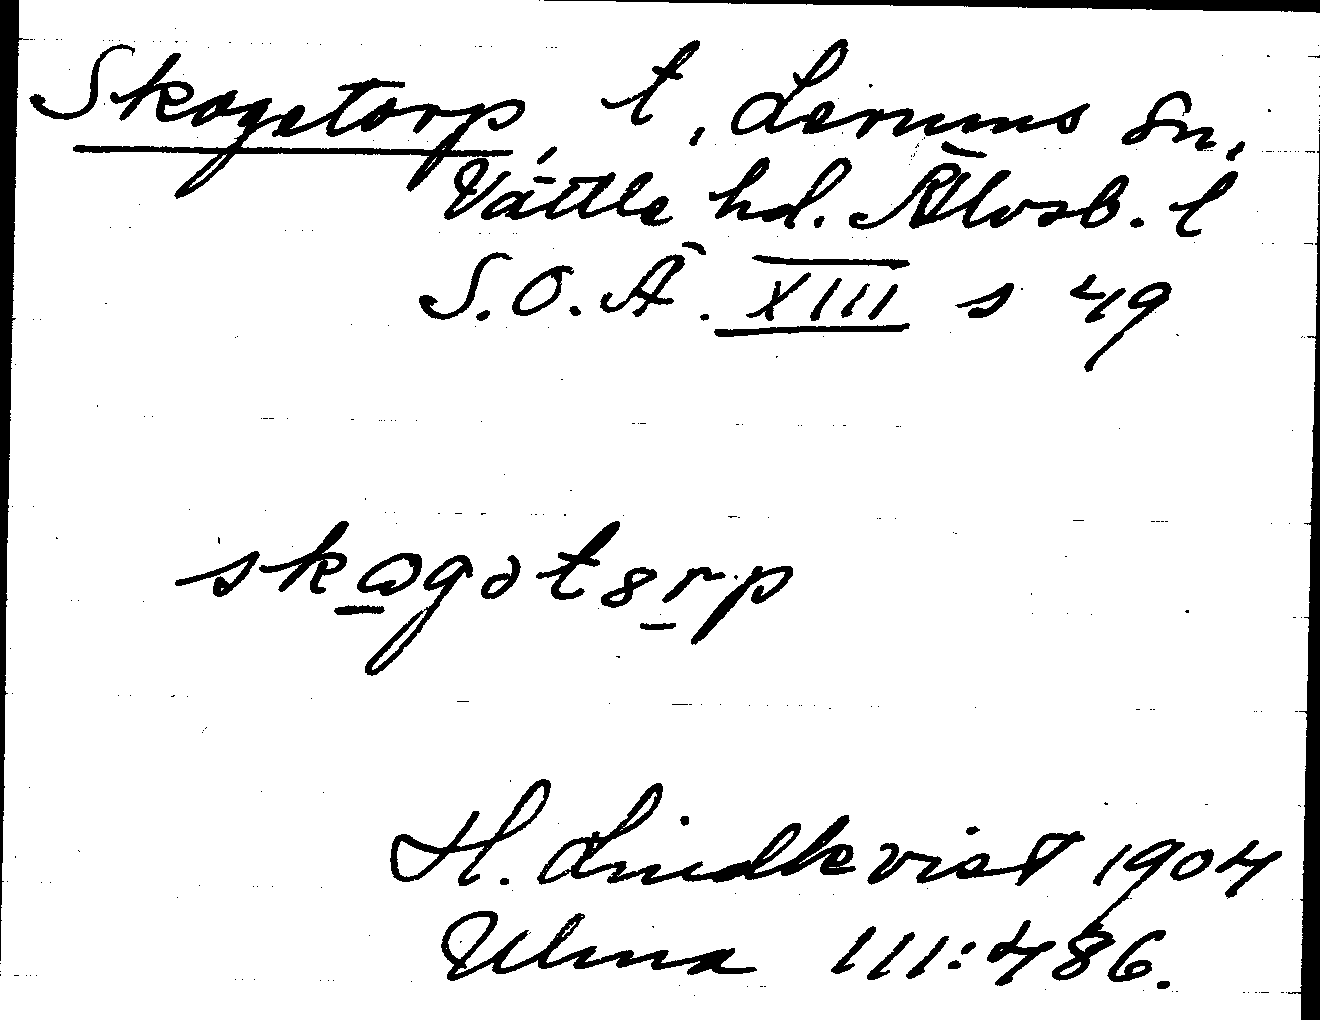 Skogetorp, t, Lerums sn,
Vättle hd. Älvsb. l
S.O.Ä. XIII s 49
skogətorp
H. Lindkvist 1904
Ulma 111:486.